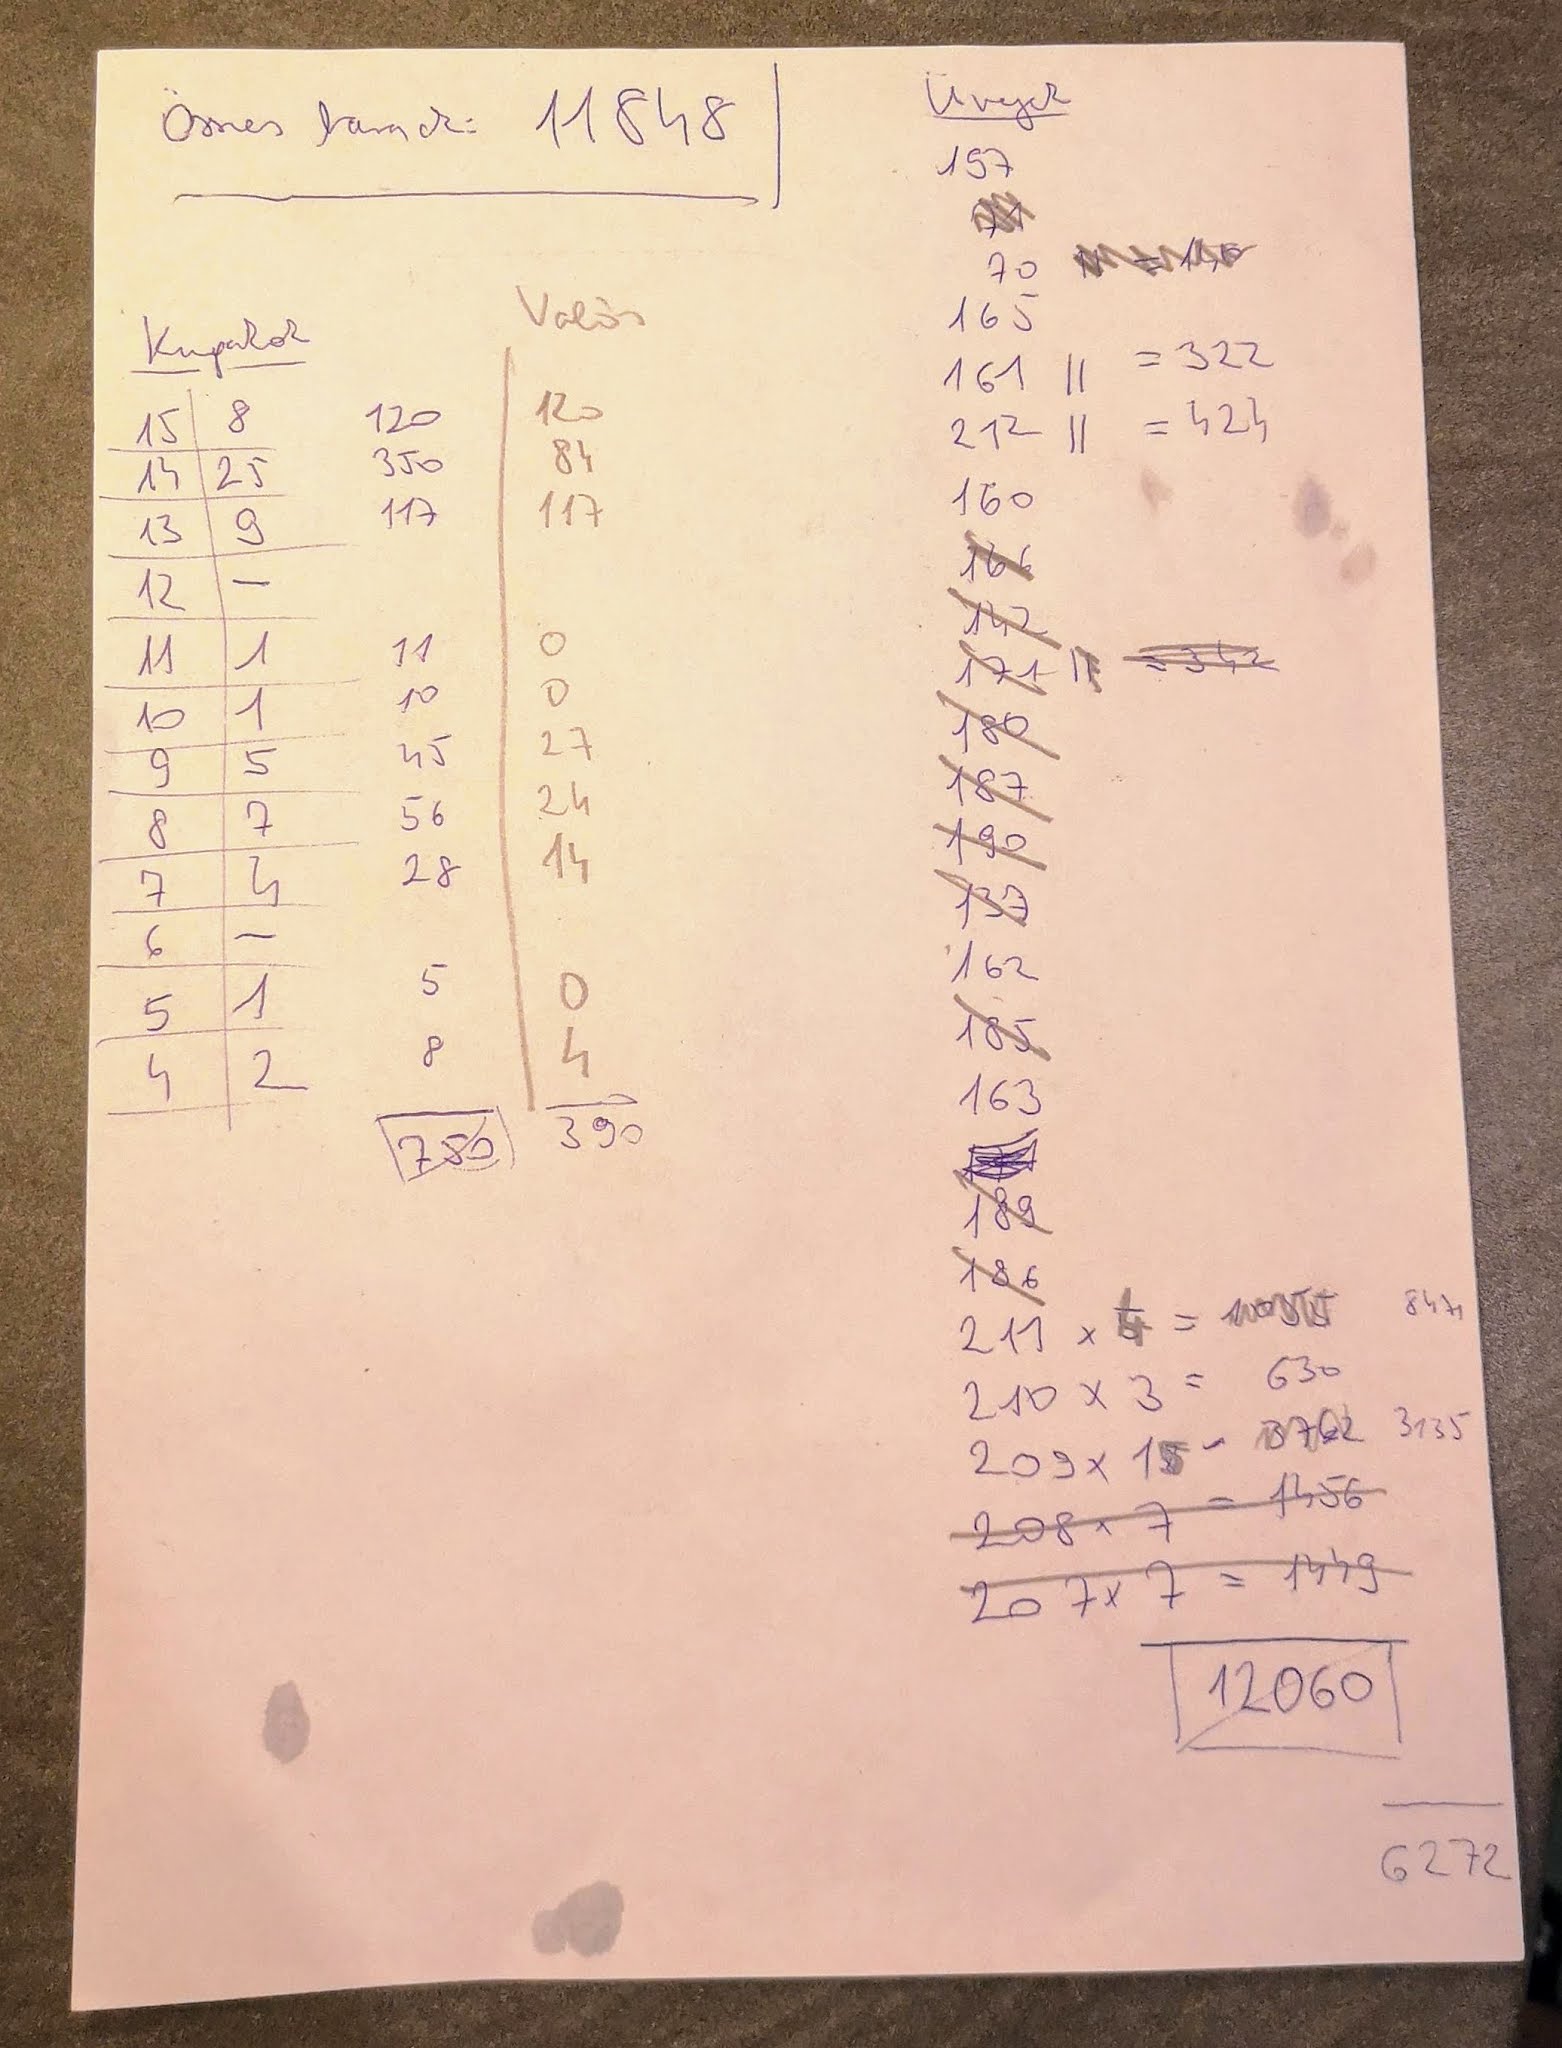 Összes barack: 11848
Kupakok Valós
15 8 120 120
14 25 350 84
13 9 117 117
12 -
11 1 11 0
10 1 10 0
9 5 45 27
8 7 56 24
7 4 28 14
6 -
5 1 5 0
4 2 8 4
750 390
Üvegek
157
70
165
161 || = 322
212 || = 424
160
166
142
171 || = 342
180
187
190
137
162
185
163
189
186
211 × 4 = 1055 844
210 × 3 = 630
209 × 15 - 3762 3135
208 × 7 = 1456
207 × 7 = 1449
12060
6272